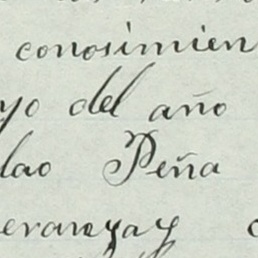 conosimien
yo del año
lao Peña